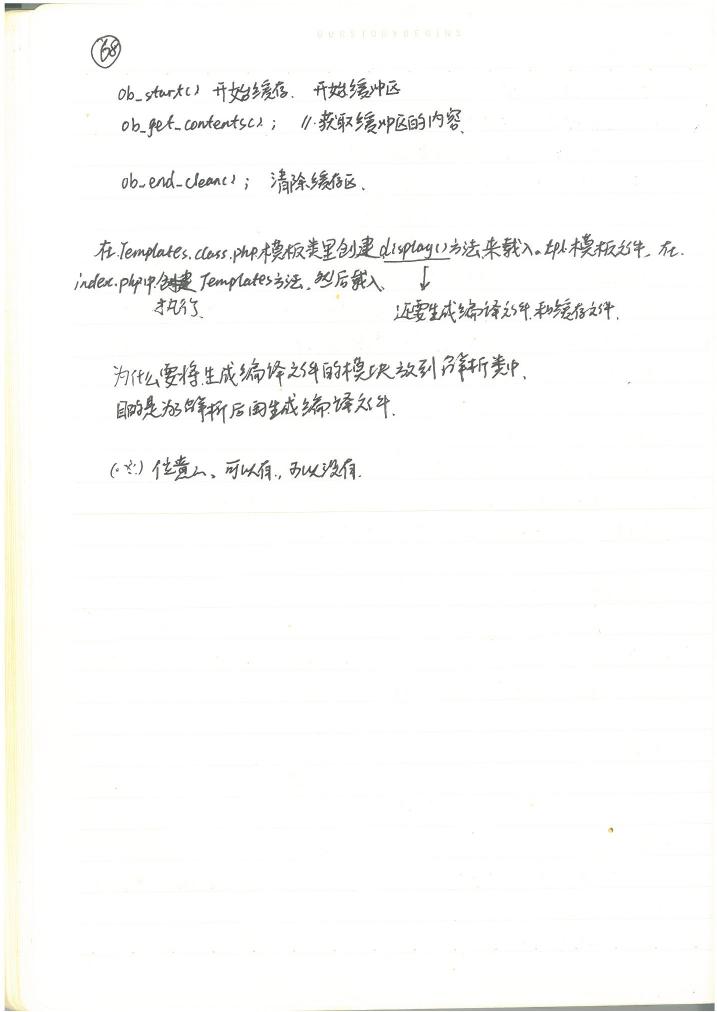 68
ob_start() 开始缓存. 开始缓冲区
ob_get_contents(); // 获取缓冲区的内容.
ob_end_clean(); 清除缓存区.
在Templates.class.php模板类里创建display()方法来载入.tpl模板文件. 在.
index.php中创建Templates方法. 然后载入.
执行. 还要生成编译文件和缓存文件.
为什么要将生成编译文件的模块放到解析类中.
目的是为了解析后再生成编译文件.
可以有., 可以没有.